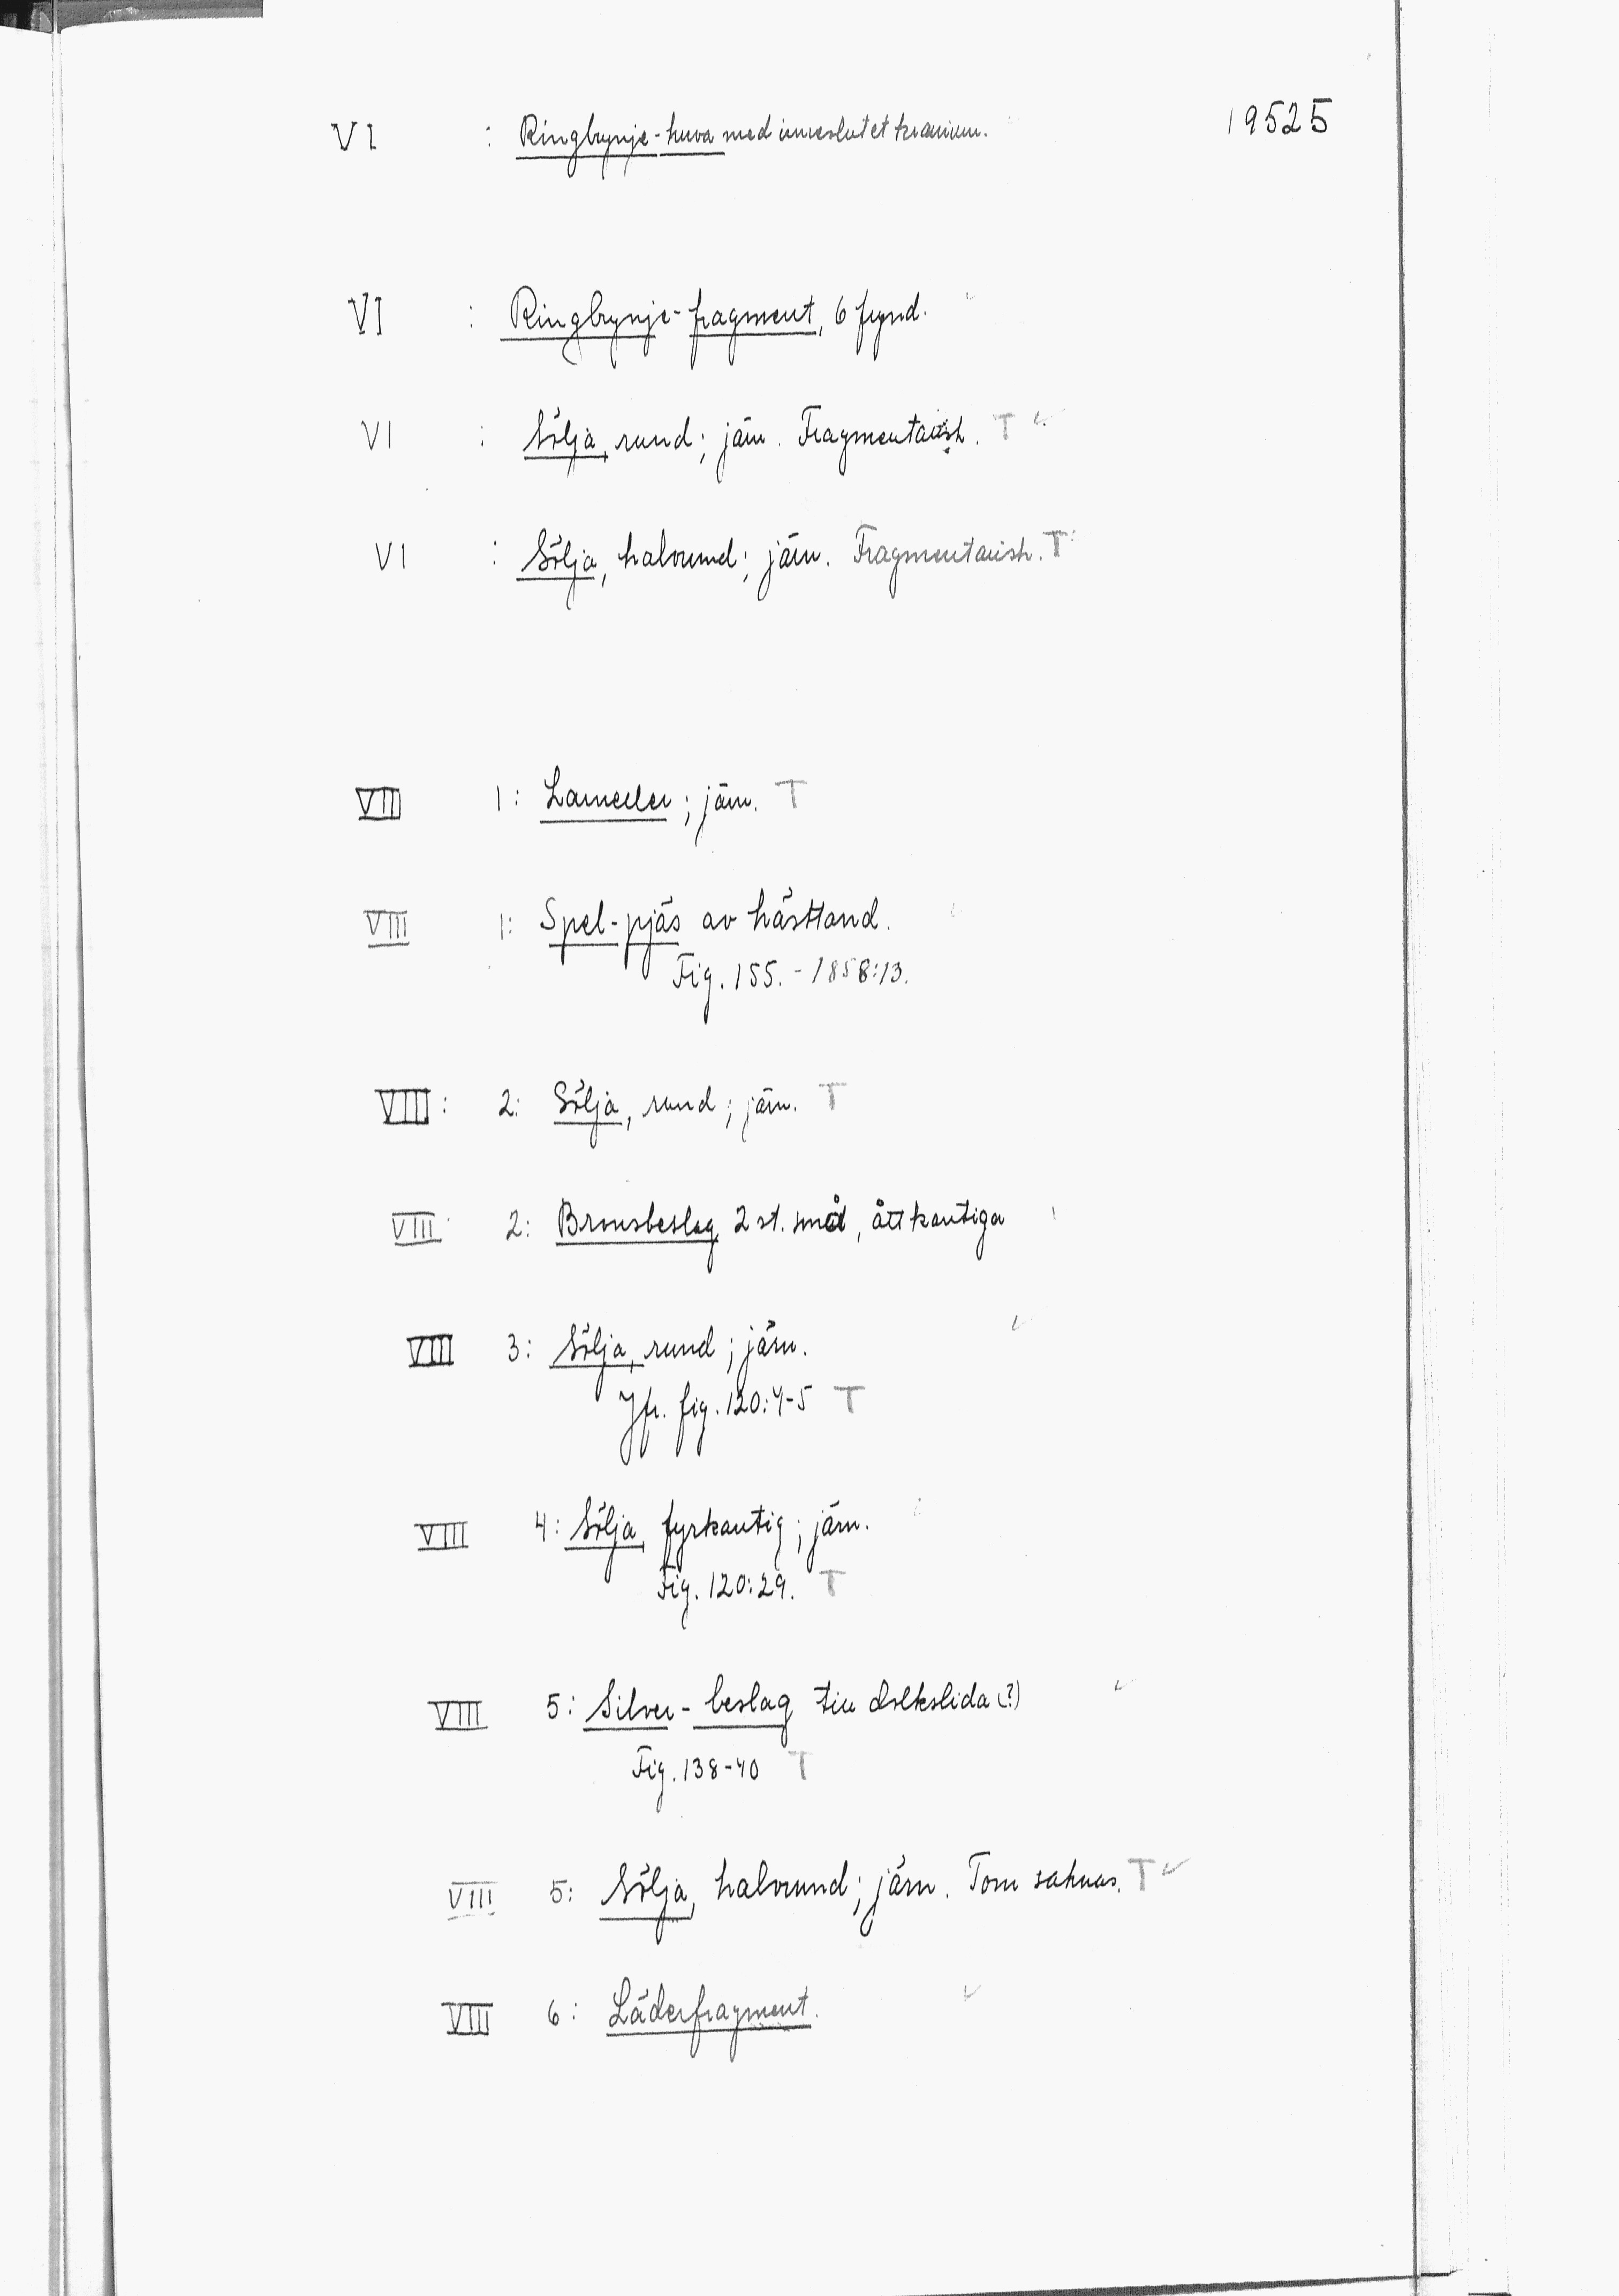 19525
VI : Ringbrynje-huva med inneslutet kranium.
VI : Ringbrynje-fragment, 6 fynd.
VI : Sölja, rund; järn. Fragmentarisk. T
VI : Sölja, halvrund; järn. Fragmentarisk. T
VIII 1: Lameller; järn. T
VIII 1: Spel-pjäs av hästtand.
Fig. 155. - 1858:13.
VIII: 2: Sölja, rund; järn. T
VIII 2: Bronsbeslag, 2 st. små, åttkantiga
VIII 3: Sölja, rund; järn.
Jfr. fig. 120:4-5 T
VIII 4: Sölja, fyrkantig; järn.
Fig. 120:29. T
VIII 5: Silver-beslag till dolkslida (?)
Fig. 138-40 T
VIII 5: Sölja, halvrund; järn. Torn saknas. T
VIII 6: Läderfragment.